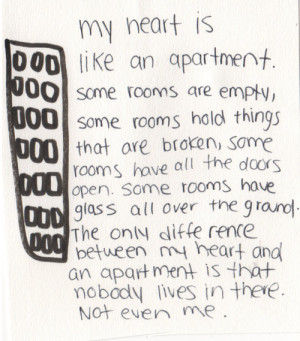 my heart is
like an apartment.
some rooms are empty,
some rooms hold things
that are broken, some
rooms have all the doors
open. some rooms have
glass all over the ground.
The only difference
between my heart and
an apartment is that
nobody lives in there.
Not even me.